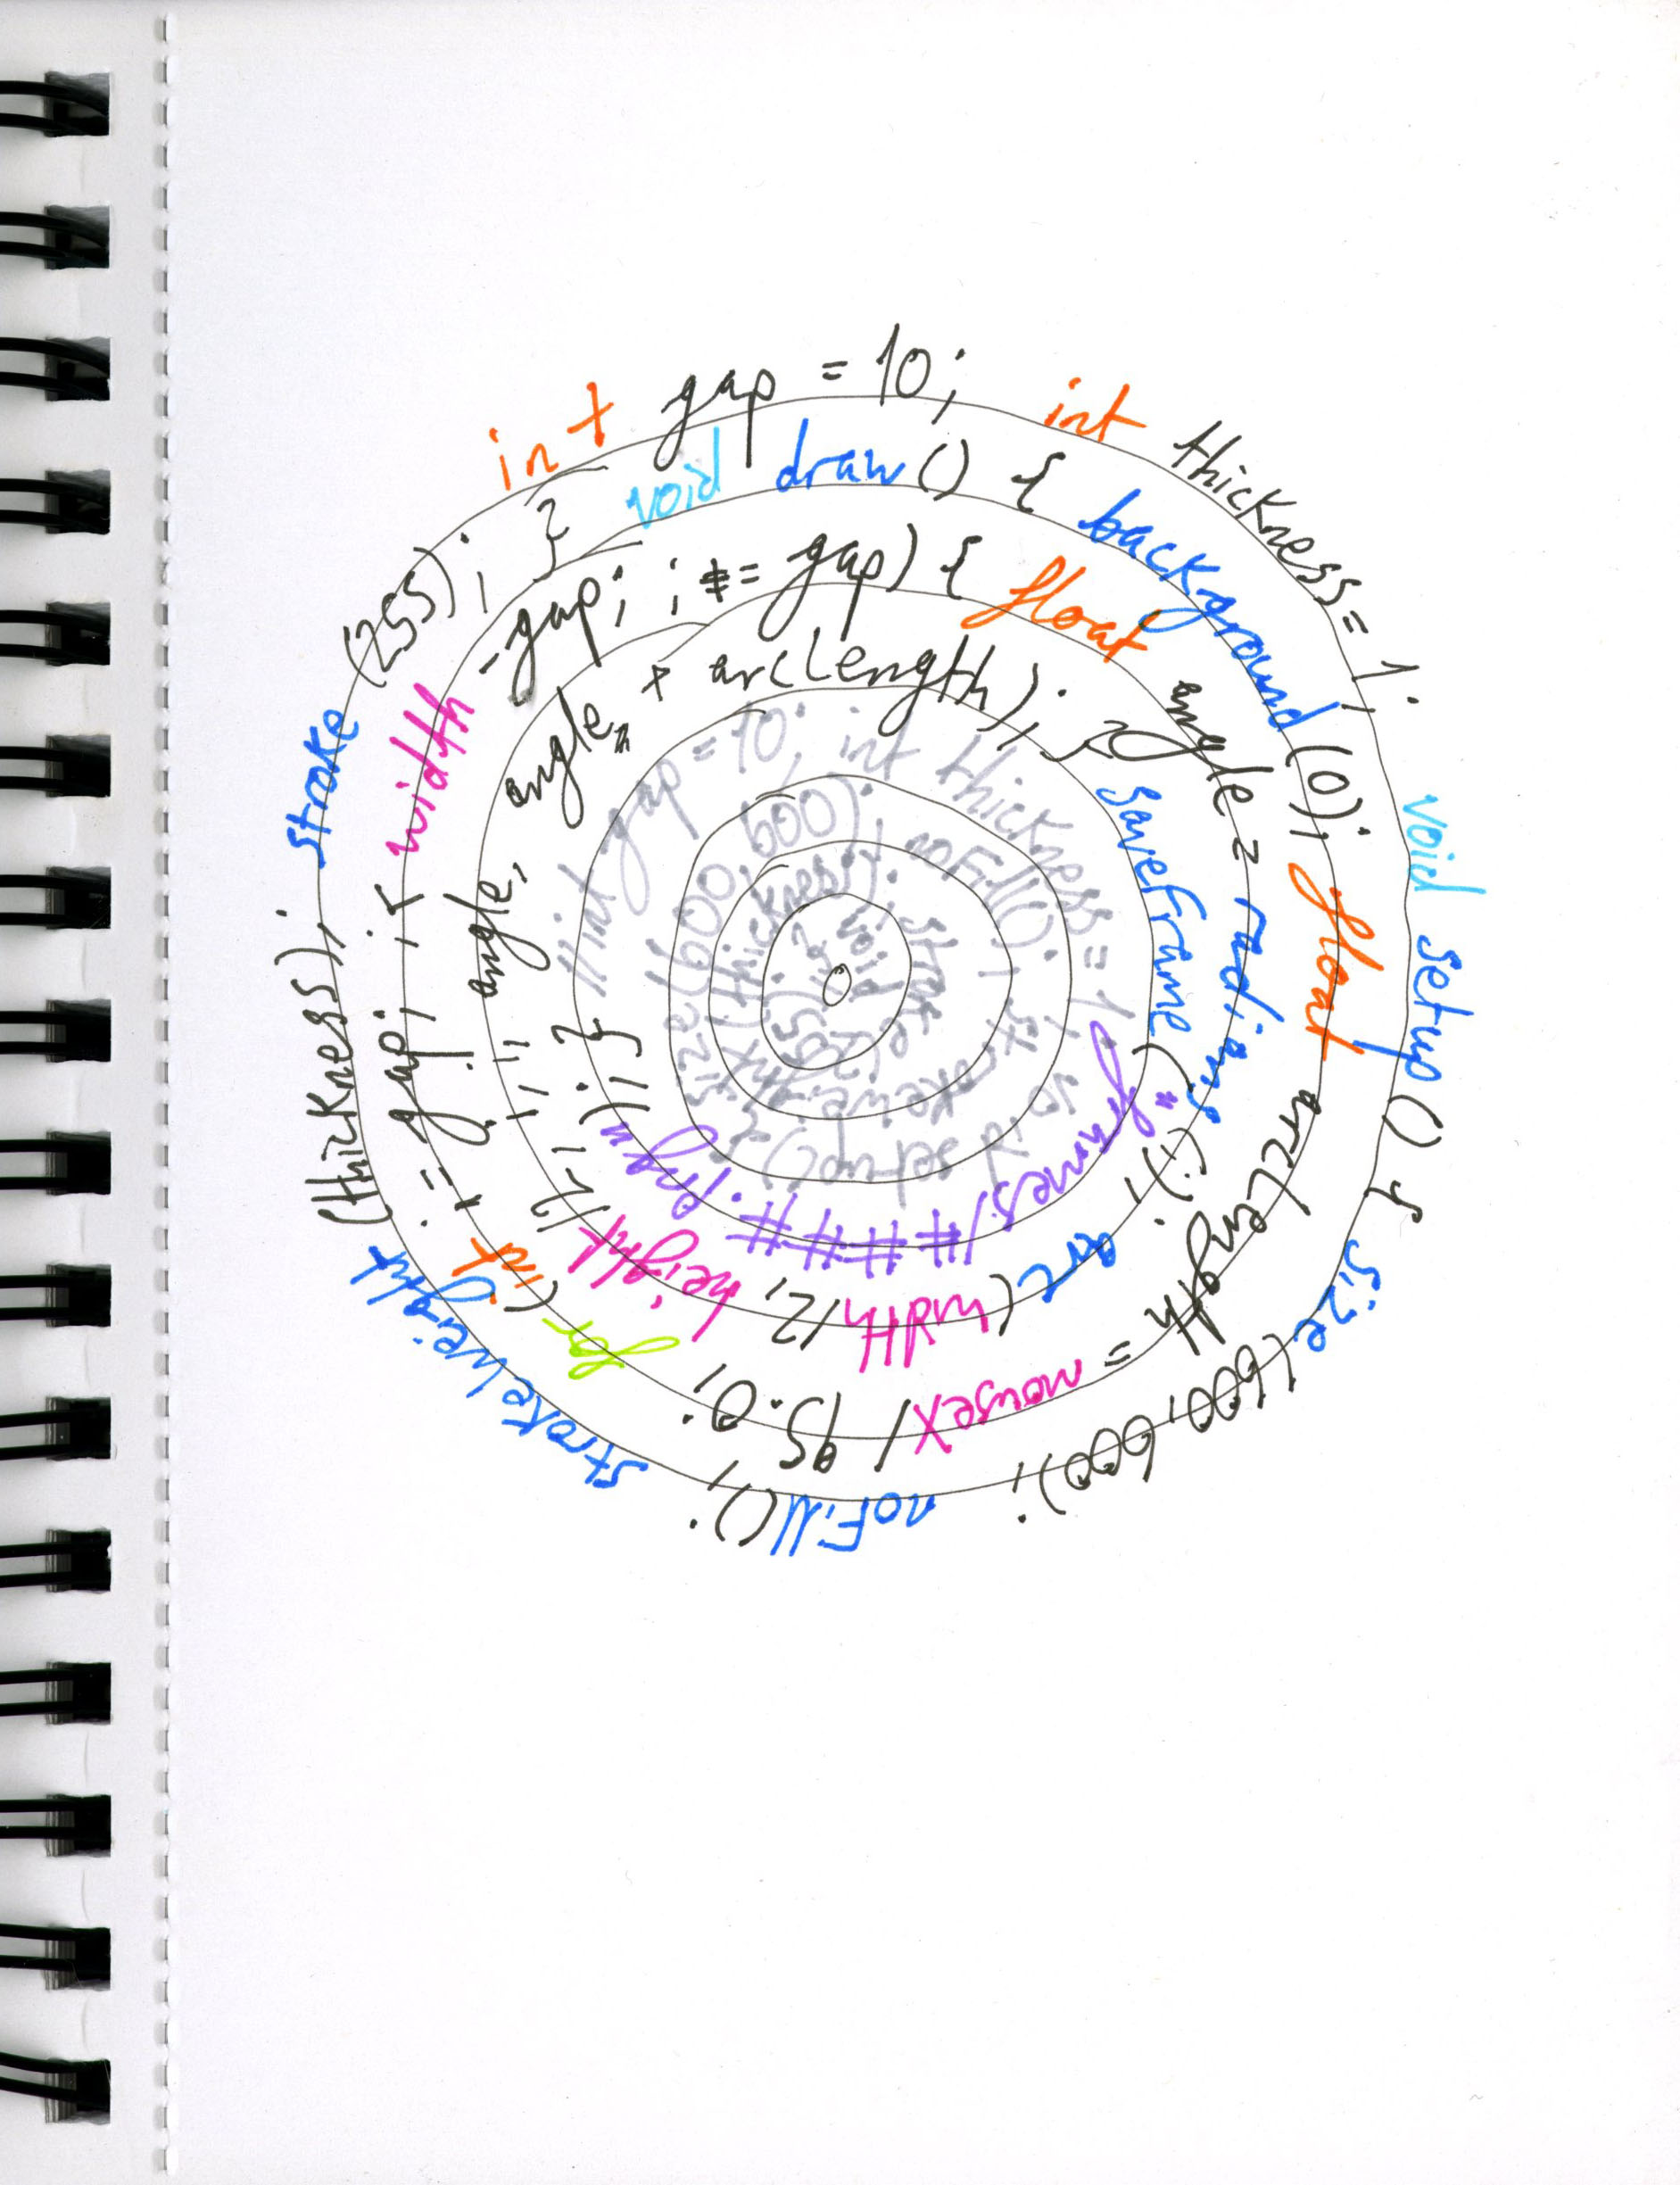 int gap = 10; int thickness = 1; void setup () { size (600, 600); noFill(); strokeWeight (thickness); stroke (255); }
void draw () { background (0); float arcLength = mouseX / 95.0; for (int i = gap; i < width
-gap; i += gap) { float angle = radians (i); arc (width /2, height /2, i, i, angle,
angle + arcLength); } saveFrame ("frames/####.png"); }
//int gap = 10; int thickness = 1; void setup() {
size (600, 600); noFill(); strokeWeight
(thickness); stroke (255);
} void